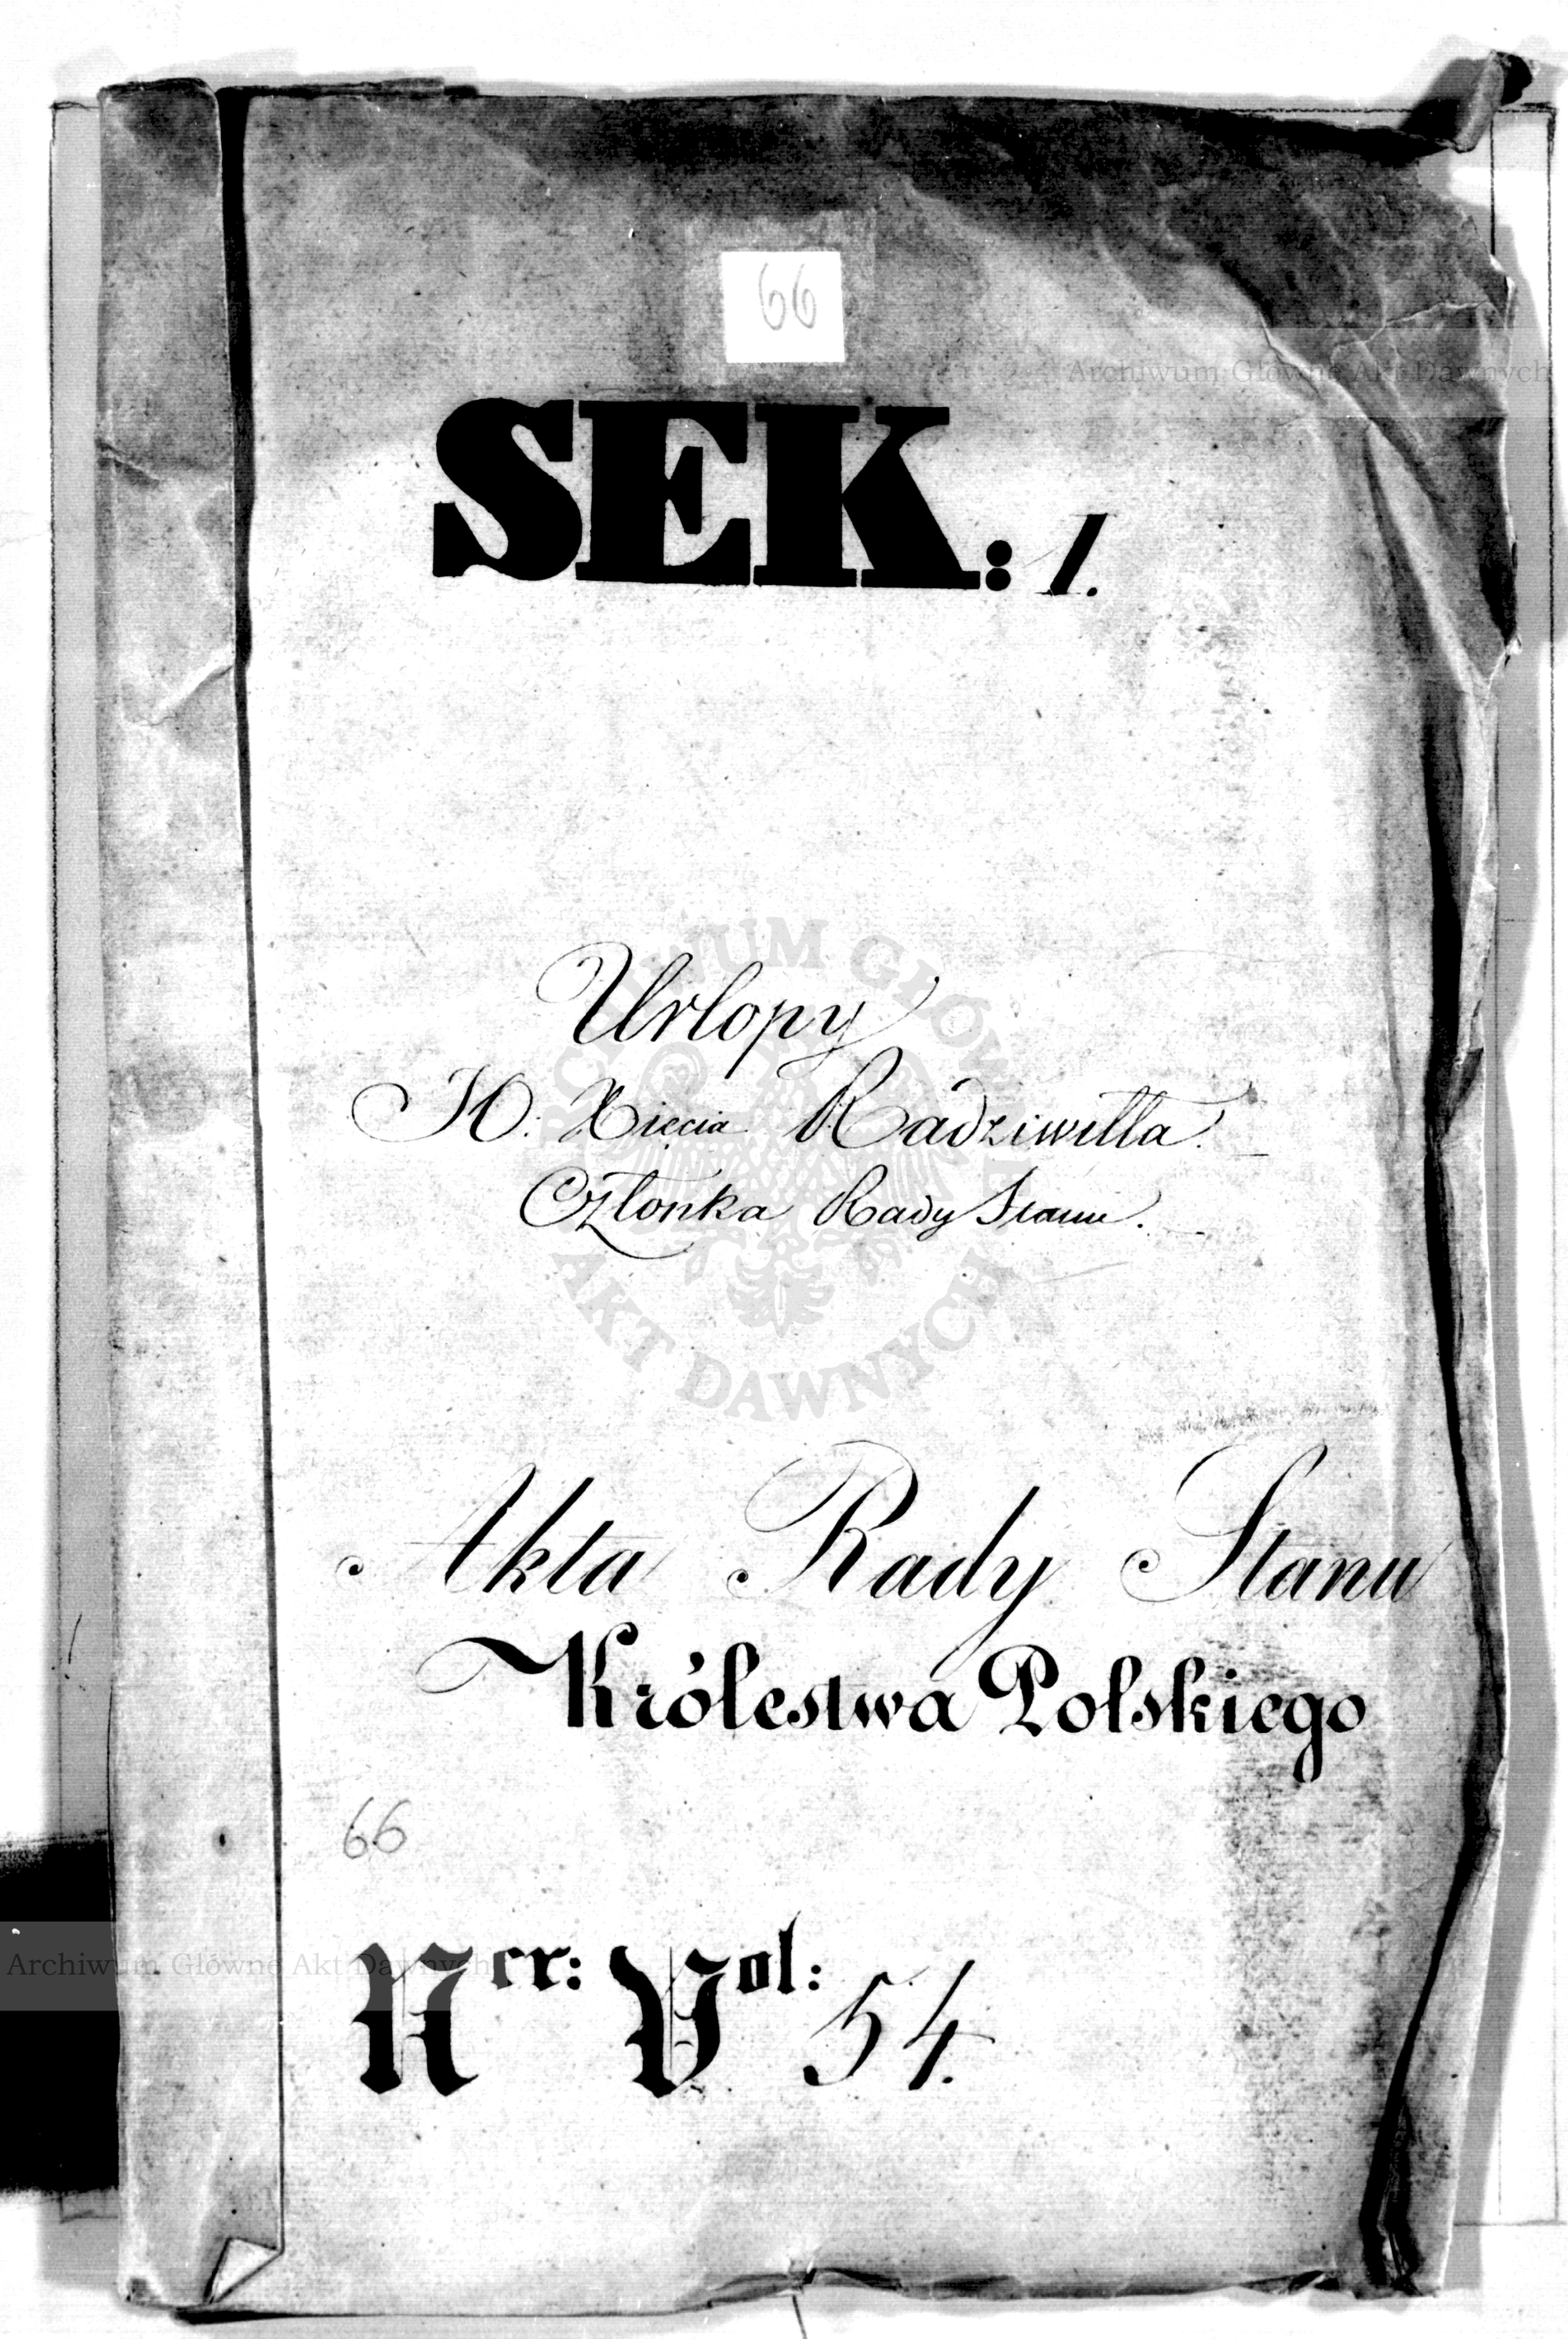 66
Archiwum Główne Akt Dawnych
SEK: 1.
Urlopy
Xięcia Radziwiłła.
Członka Rady Stanu.
ARCHIWUM GŁÓWNE AKT DAWNYCH
Akta Rady Stanu
Królestwa Polskiego
66
Archiwum Główne Akt Dawnych
Ner: Vol: 54.